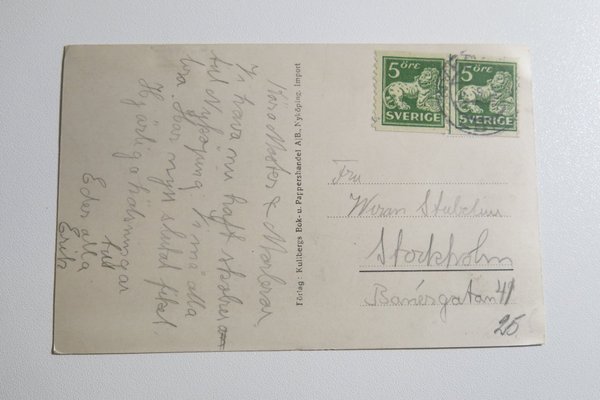 Kära Moster & Morbror
Vi hava nu haft skolres
till Nyköping. Vi må alla
bra
Hjärtliga hälsningar
till
Eder alla
Erik
Förlag: Kullbergs Bok- u. Pappershandel A/B., Nyköping. Import
5 ÖRE
SVERIGE
5 ÖRE
SVERIGE
Fru
Stockholm
Banérsgatan 41
25